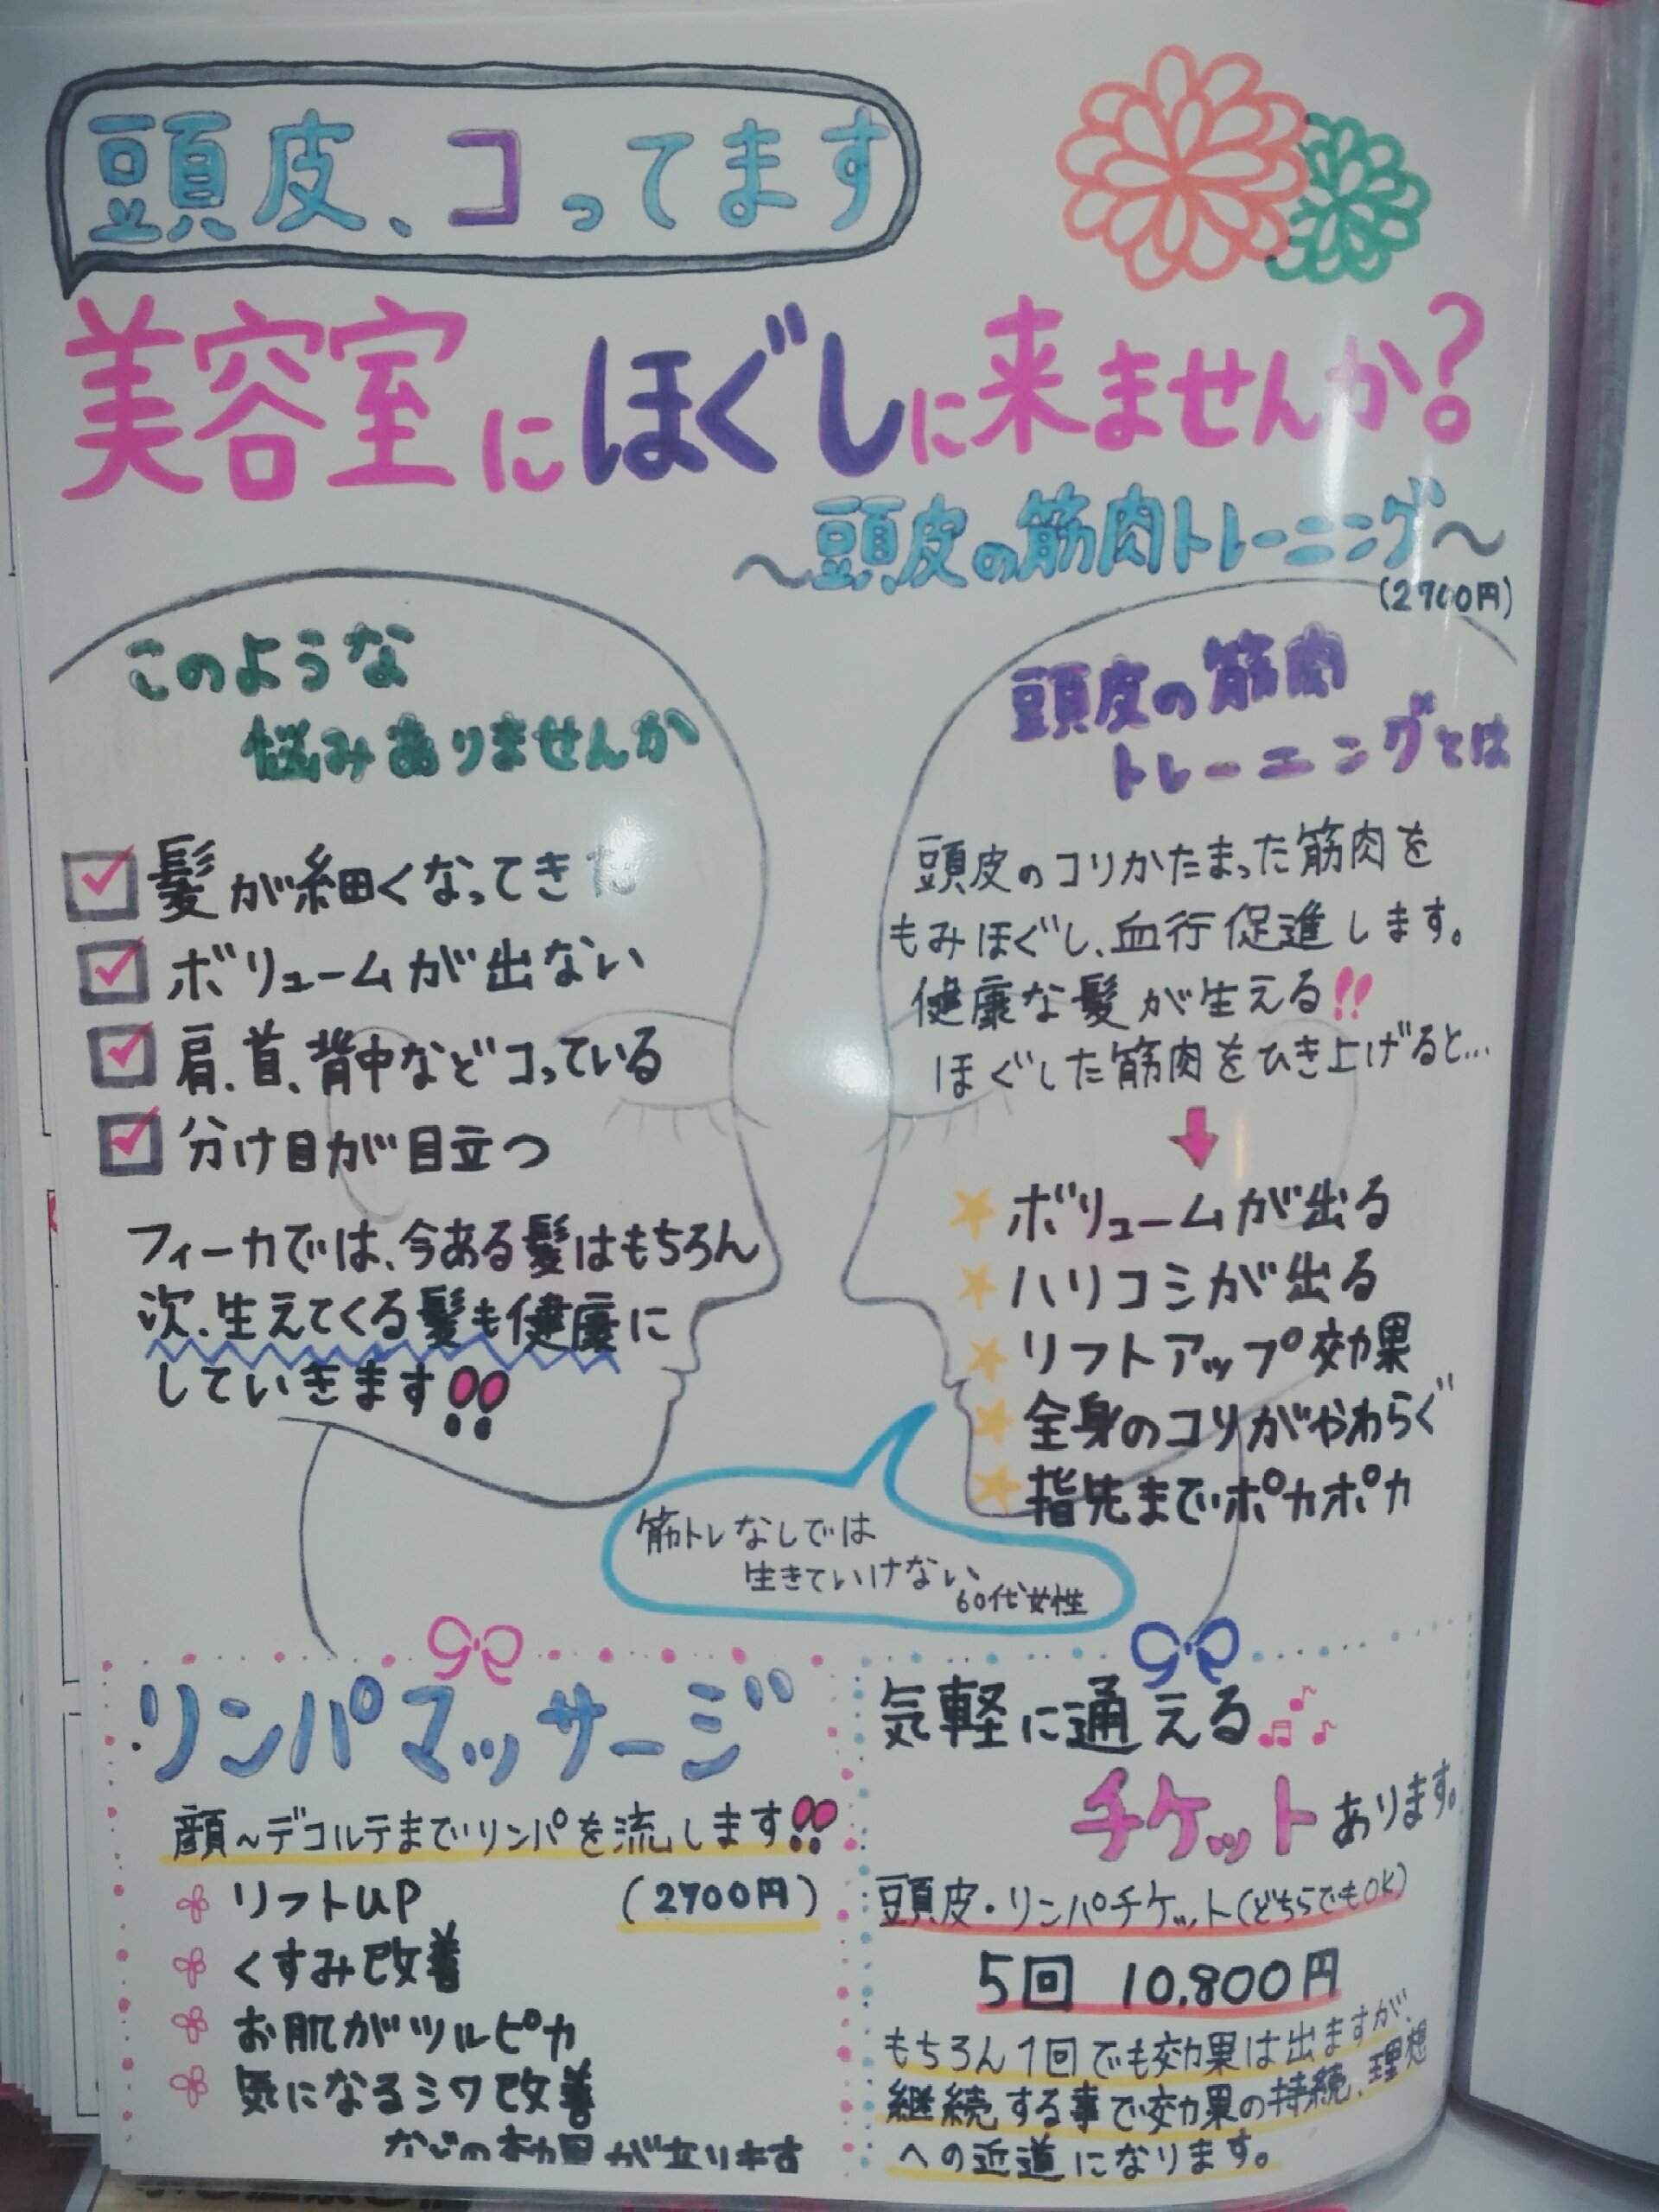 頭皮、コってます
美容室にほぐしに来ませんか?
〜頭皮の筋肉トレーニング〜
(2700円)
このような
悩みありませんか
髪が細くなってきた
ボリュームが出ない
肩、首、背中などコっている
分け目が目立つ
フィーカでは、今ある髪はもちろん
次、生えてくる髪も健康に
していきます!!
頭皮の筋肉
トレーニングとは
頭皮のコリかたまった筋肉を
もみほぐし、血行促進します。
健康な髪が生える!!
ほぐした筋肉をひき上げると...
ボリュームが出る
ハリコシが出る
リフトアップ効果
全身のコリがやわらぐ
指先までポカポカ
筋トレなしでは
生きていけない
60代女性
リンパマッサージ
顔〜デコルテまでリンパを流します!!
リフトUP
(2700円)
くすみ改善
お肌がツルピカ
気になるシワ改善
などの効果が
気軽に通える
チケットあります。
頭皮・リンパチケット(どちらでもOK)
5回 10,800円
もちろん1回でも効果は出ますが、
継続する事で効果の持続、理想
への近道になります。